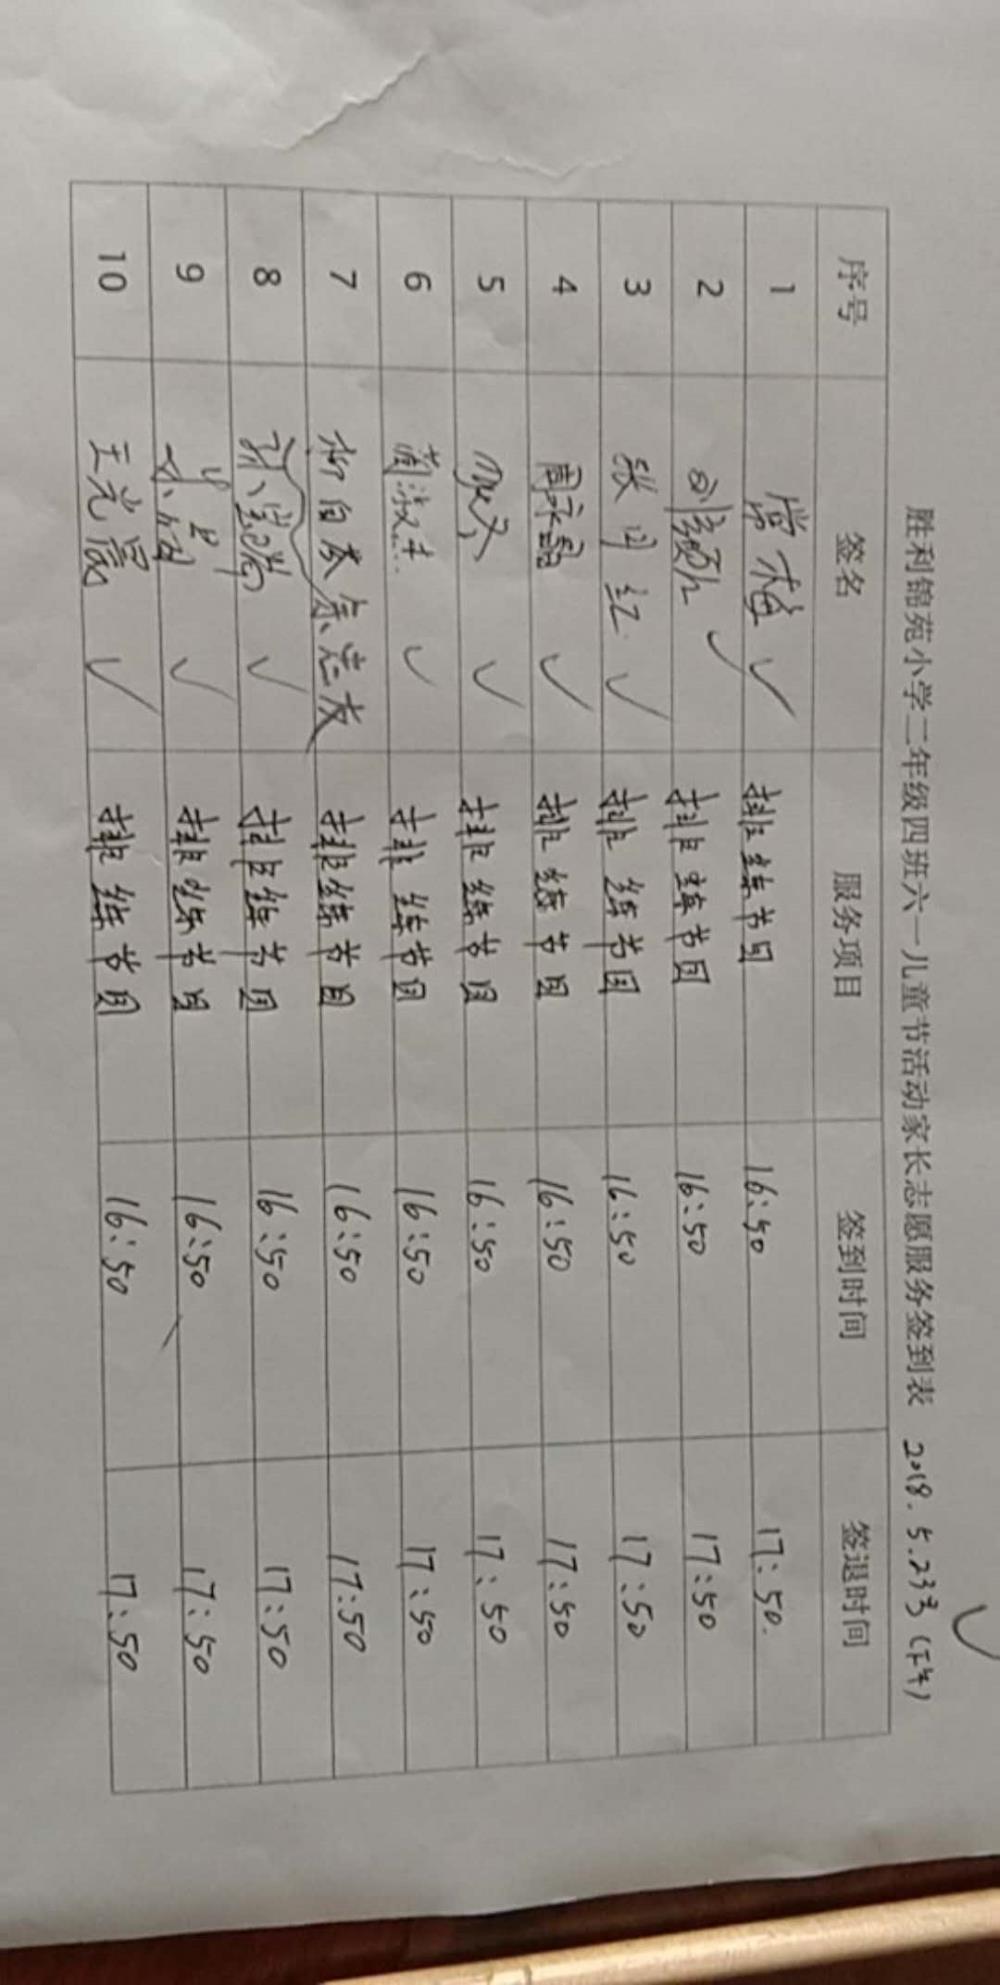 胜利锦苑小学二年级四班六一儿童节活动家长志愿服务签到表 2018.5.23号(下午)
序号 签名 服务项目 签到时间 签退时间
1 常植 ✓ 排练节目 16:50 17:50.
2 ✓ 排练节目 16:50 17:50
3 张同红 ✓ 排练节目 16:50 17:50
4 ✓ 排练节目 16:50 17:50
5 ✓ 排练节目 16:50 17:50
6 ✓ 排练节目 16:50 17:50
7 排练节目 16:50 17:50
8 ✓ 排练节目 16:50 17:50
9 ✓ 排练节目 16:50 17:50
10 ✓ 排练节目 16:50 17:50